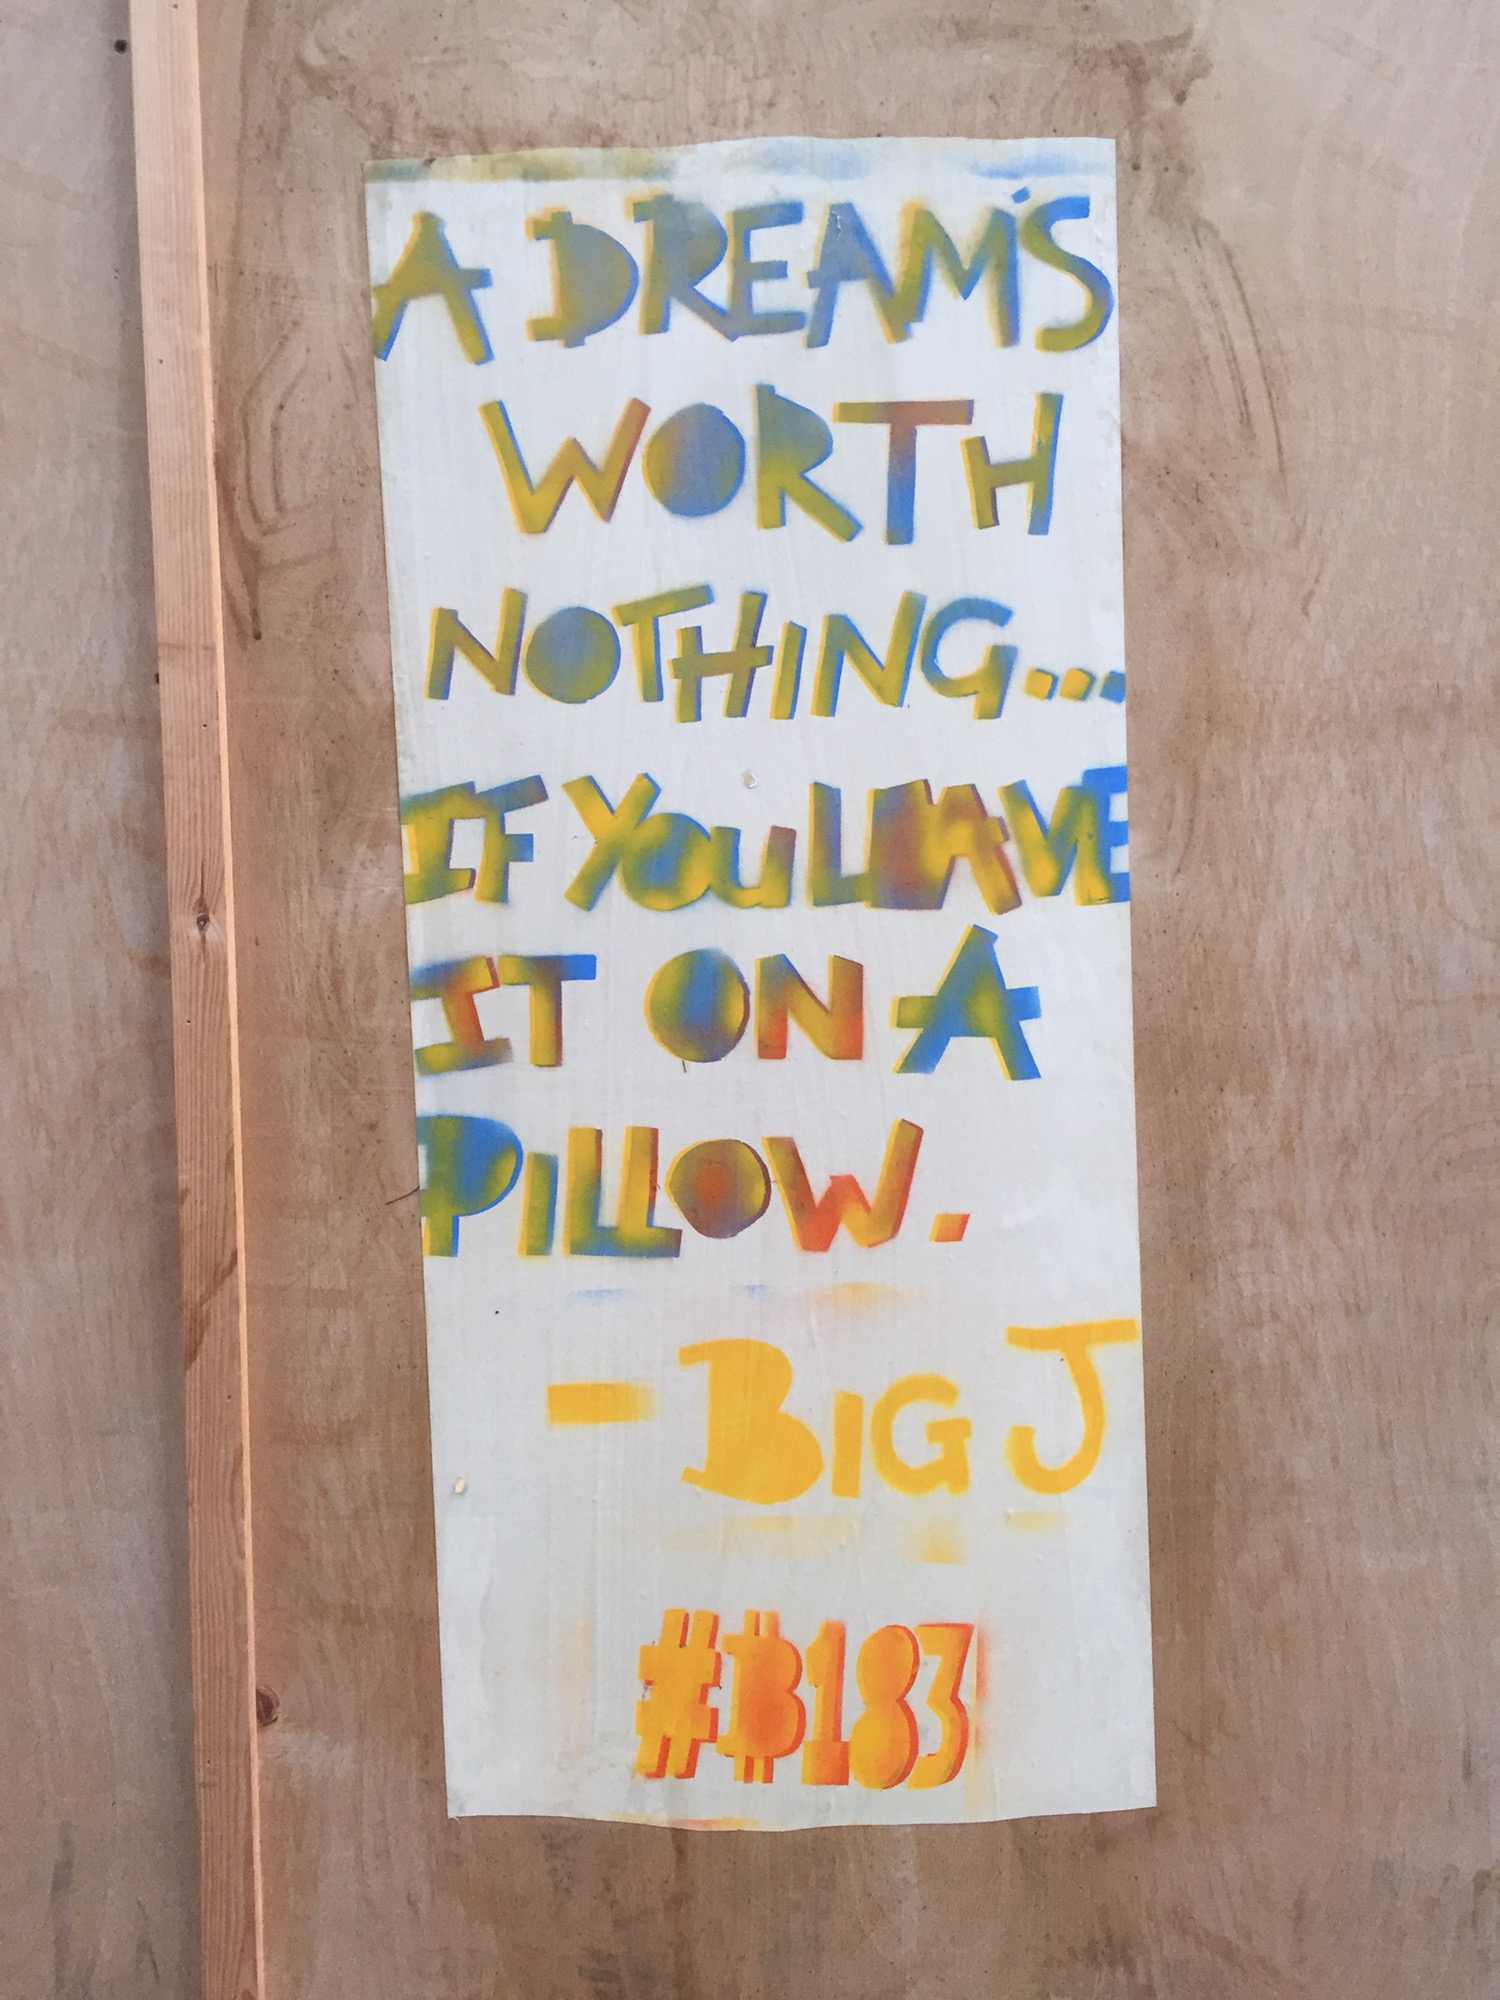 A DREAM'S
WORTH
NOTHING...
IF YOU LEAVE
IT ON A
PILLOW.
- BIG J
#B183